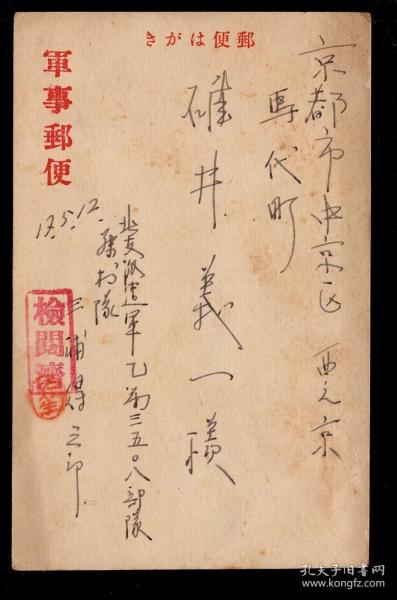 きがは便郵
軍事郵便
京都市中京区 西ノ京
馬代町
碓井義一様
17.5.12.
北支派遣軍乙第三五〇八部隊
村隊
三浦
檢閲濟
孔夫子旧书网
www.kongfz.com